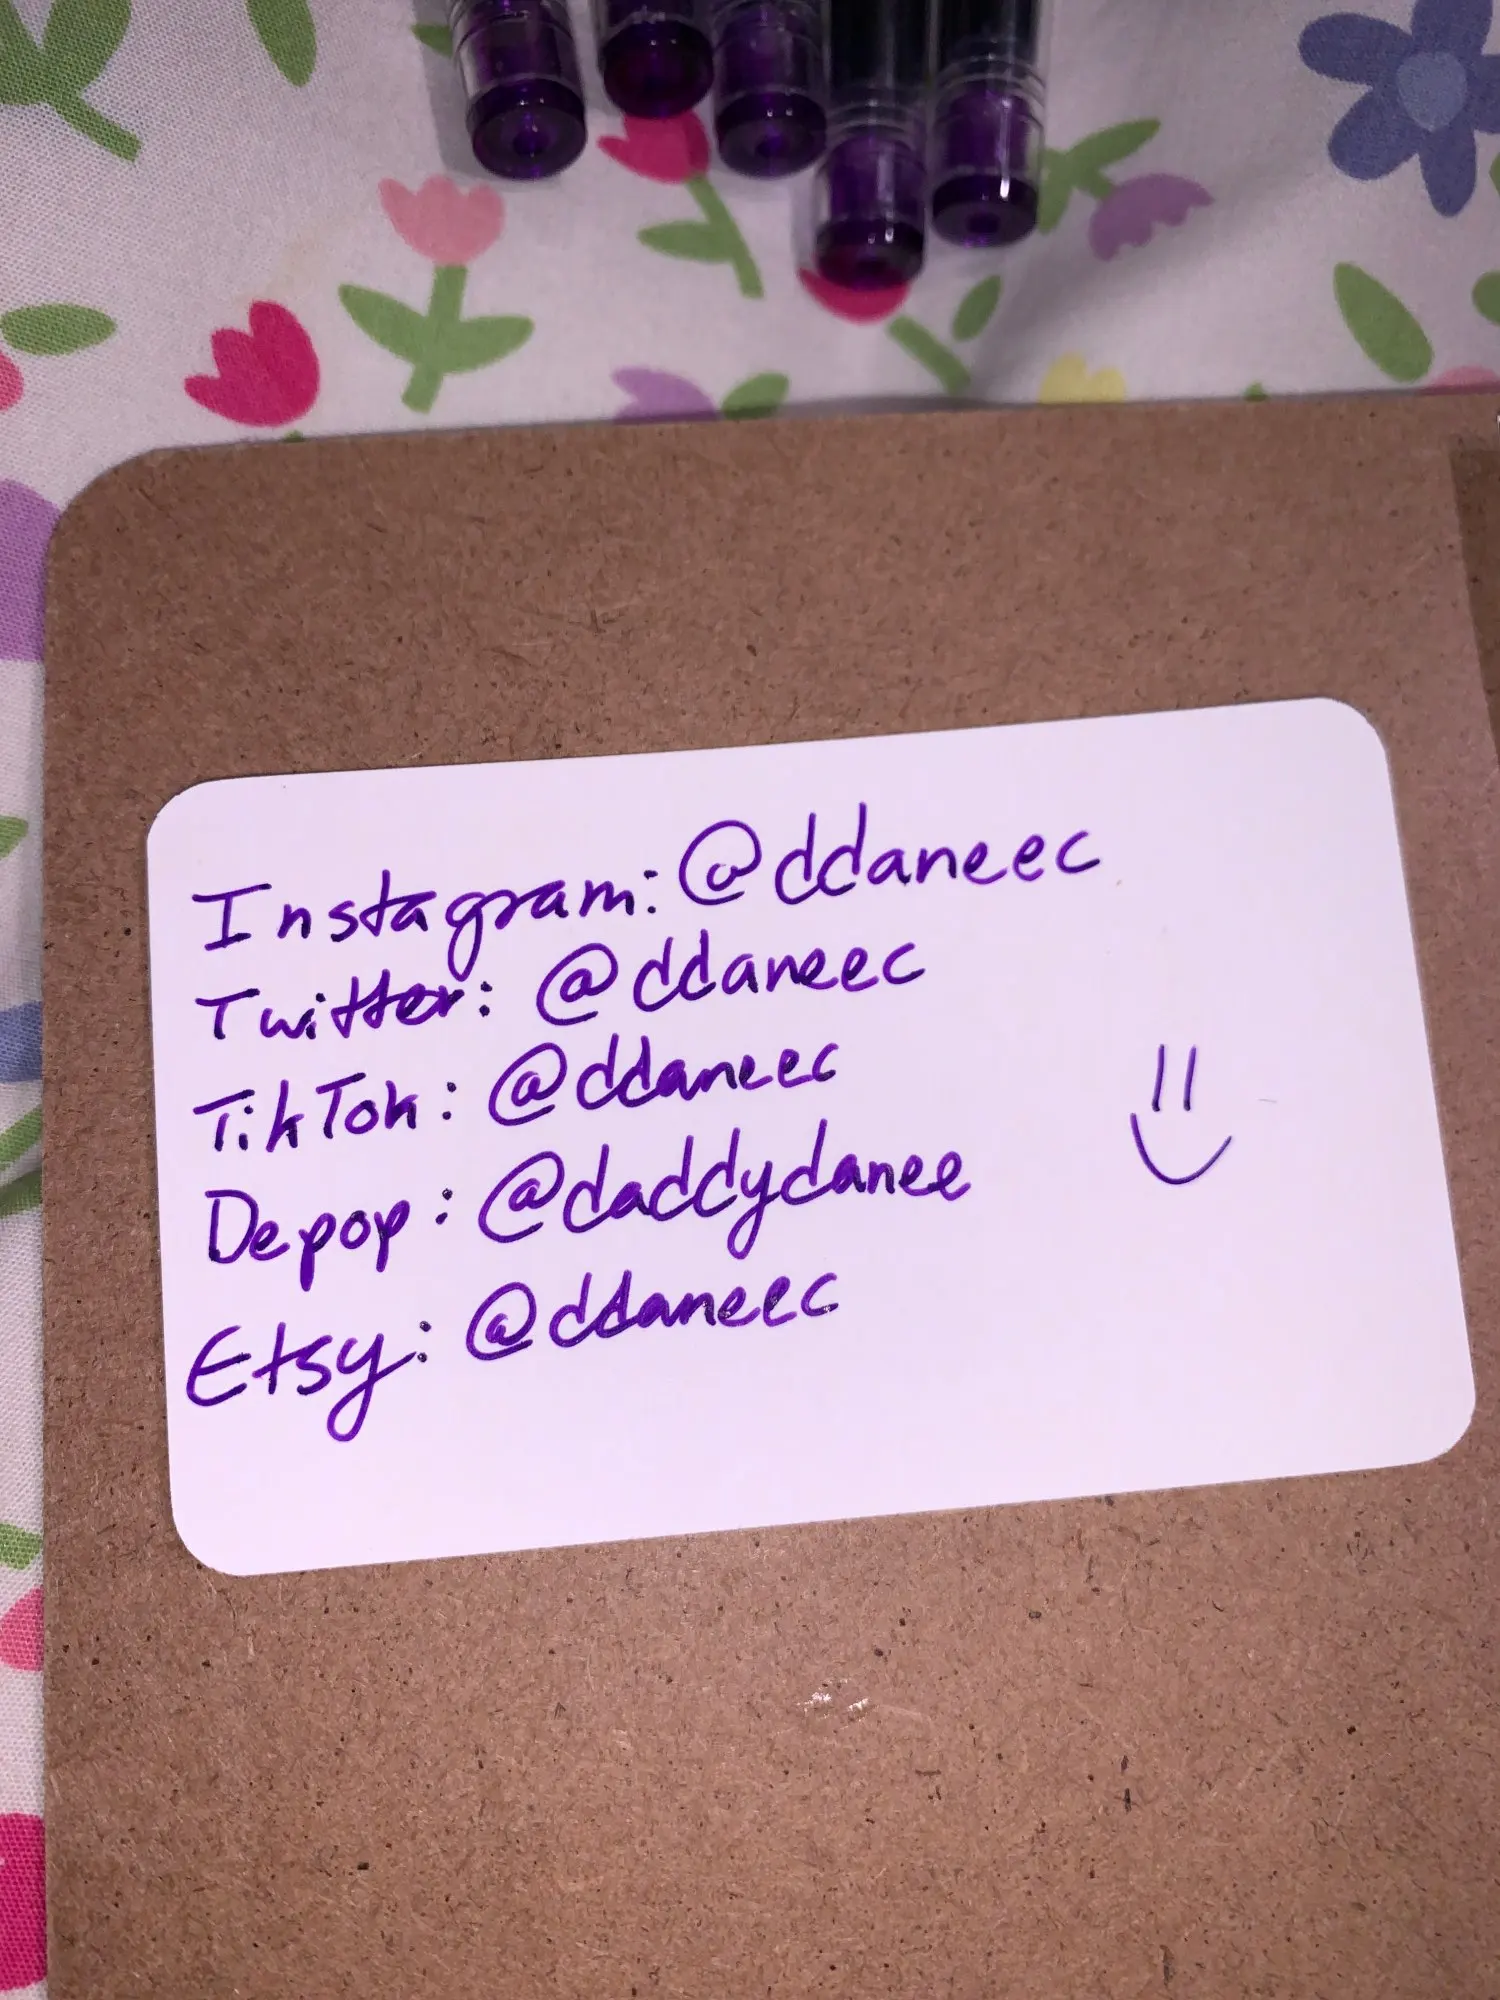 Instagram: @ddaneec
Twitter: @ddaneec
TikTok: @ddaneec
Depop: @daddydanee
Etsy: @ddaneec